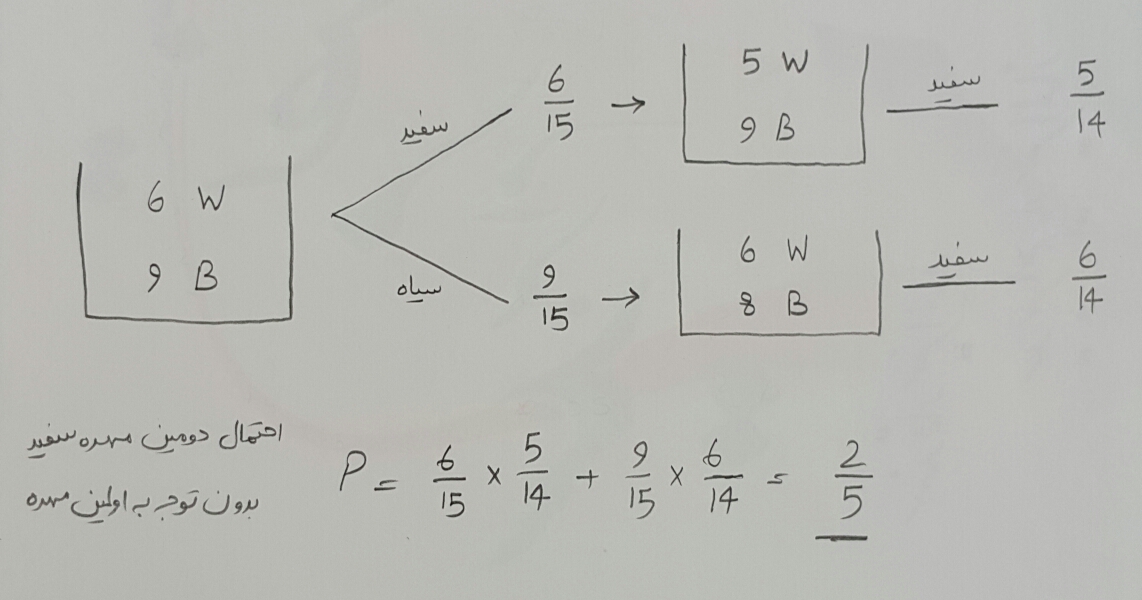 6 W
9 B
سفید
6/15 →
5 W
9 B
سفید
5/14
سیاه
9/15 →
6 W
8 B
سفید
6/14
احتمال دومین مهره سفید
بدون توجه به اولین مهره
P = 6/15 × 5/14 + 9/15 × 6/14 = 2/5